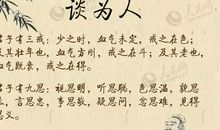 谈为人
人民网
君子有三戒：少之时，血气未定，戒之在色；
及其壮也，血气方刚，戒之在斗；及其老也，
血气既衰，戒之在得。
君子有九思：视思明，听思聪，色思温，貌思
恭，言思忠，事思敬，疑思问，忿思难，见得
思义。